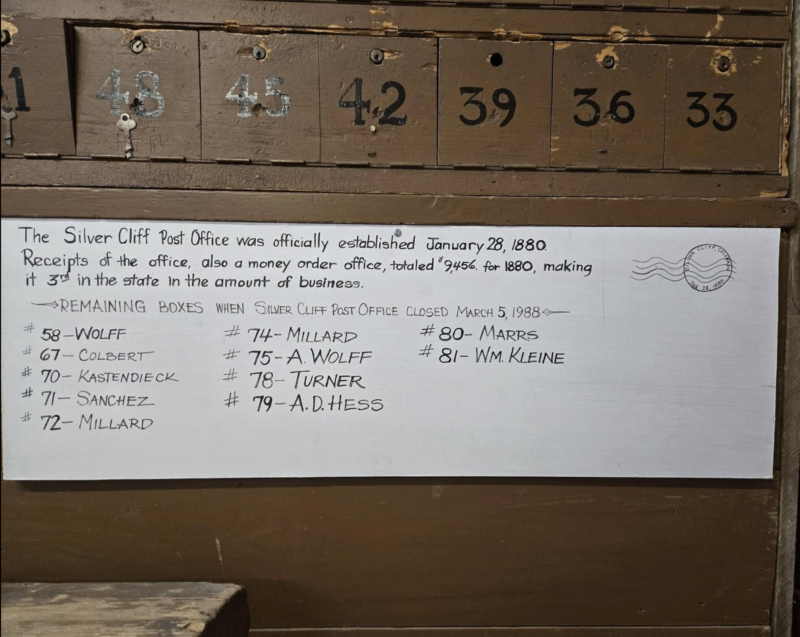 48 45 42 39 36 33
The Silver Cliff Post Office was officially established January 28, 1880.
Receipts of the office, also a money order office, totaled $9,456. for 1880, making
it 3rd in the state in the amount of business.
REMAINING BOXES WHEN SILVER CLIFF POST OFFICE CLOSED MARCH 5, 1988
# 58-WOLFF # 74-MILLARD # 80-MARRS
# 67-COLBERT # 75-A. WOLFF # 81-WM. KLEINE
# 70-KASTENDIECK # 78-TURNER
# 71-SANCHEZ # 79-A.D. HESS
# 72-MILLARD